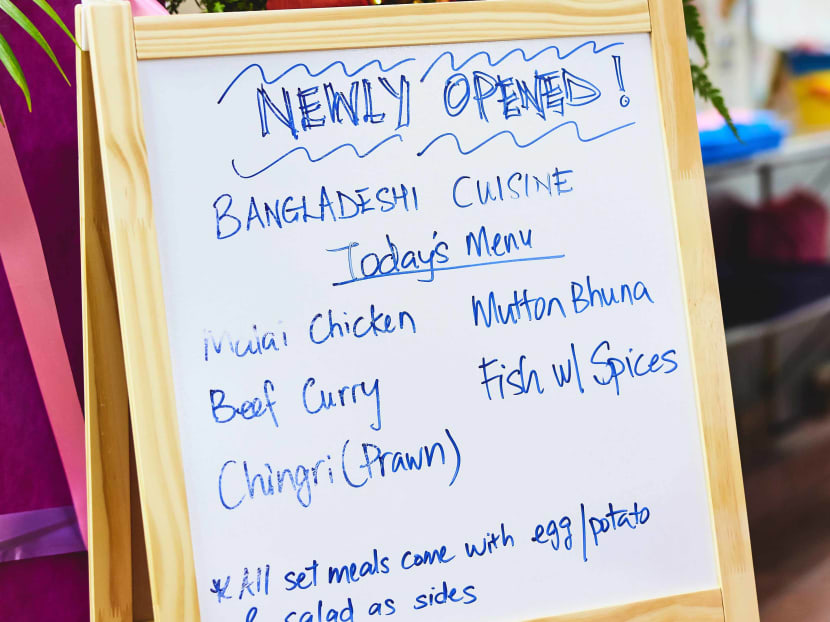 NEWLY OPENED!
BANGLADESHI CUISINE
Today's Menu
Malai Chicken
Mutton Bhuna
Beef Curry
Fish w/ Spices
Chingri (Prawn)
* All set meals come with egg/potato
& salad as sides